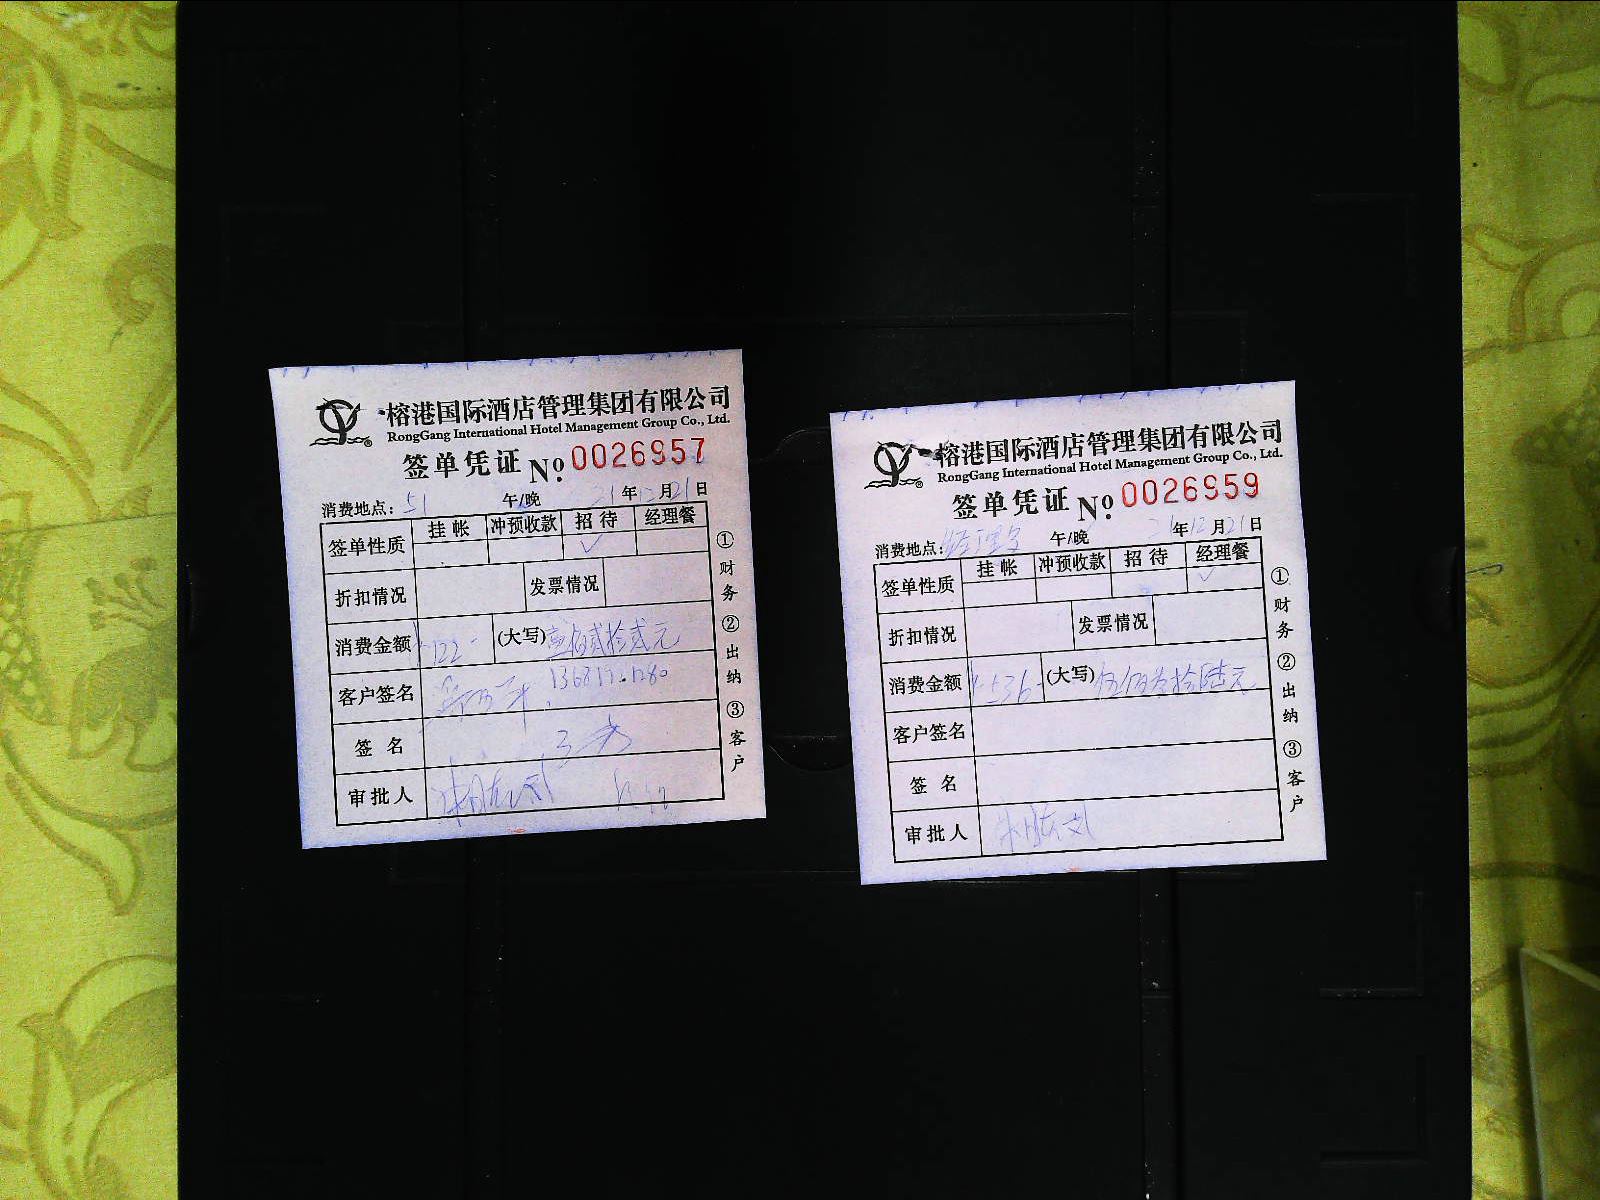 榕港国际酒店管理集团有限公司
RongGang International Hotel Management Group Co., Ltd.
签单凭证 No. 0026957
消费地点: 51 午/晚 21年12月21日
签单性质 挂帐 冲预收款 招待 经理餐
✓
折扣情况 发票情况
消费金额 ¥122- (大写) 壹佰贰拾贰元
客户签名
签名
审批人
①财务 ②出纳 ③客户
榕港国际酒店管理集团有限公司
RongGang International Hotel Management Group Co., Ltd.
签单凭证 No. 0026959
消费地点: 经理室 午/晚 21年12月21日
签单性质 挂帐 冲预收款 招待 经理餐
✓
折扣情况 发票情况
消费金额 ¥536- (大写) 伍佰叁拾陆元
客户签名
签名
审批人
①财务 ②出纳 ③客户